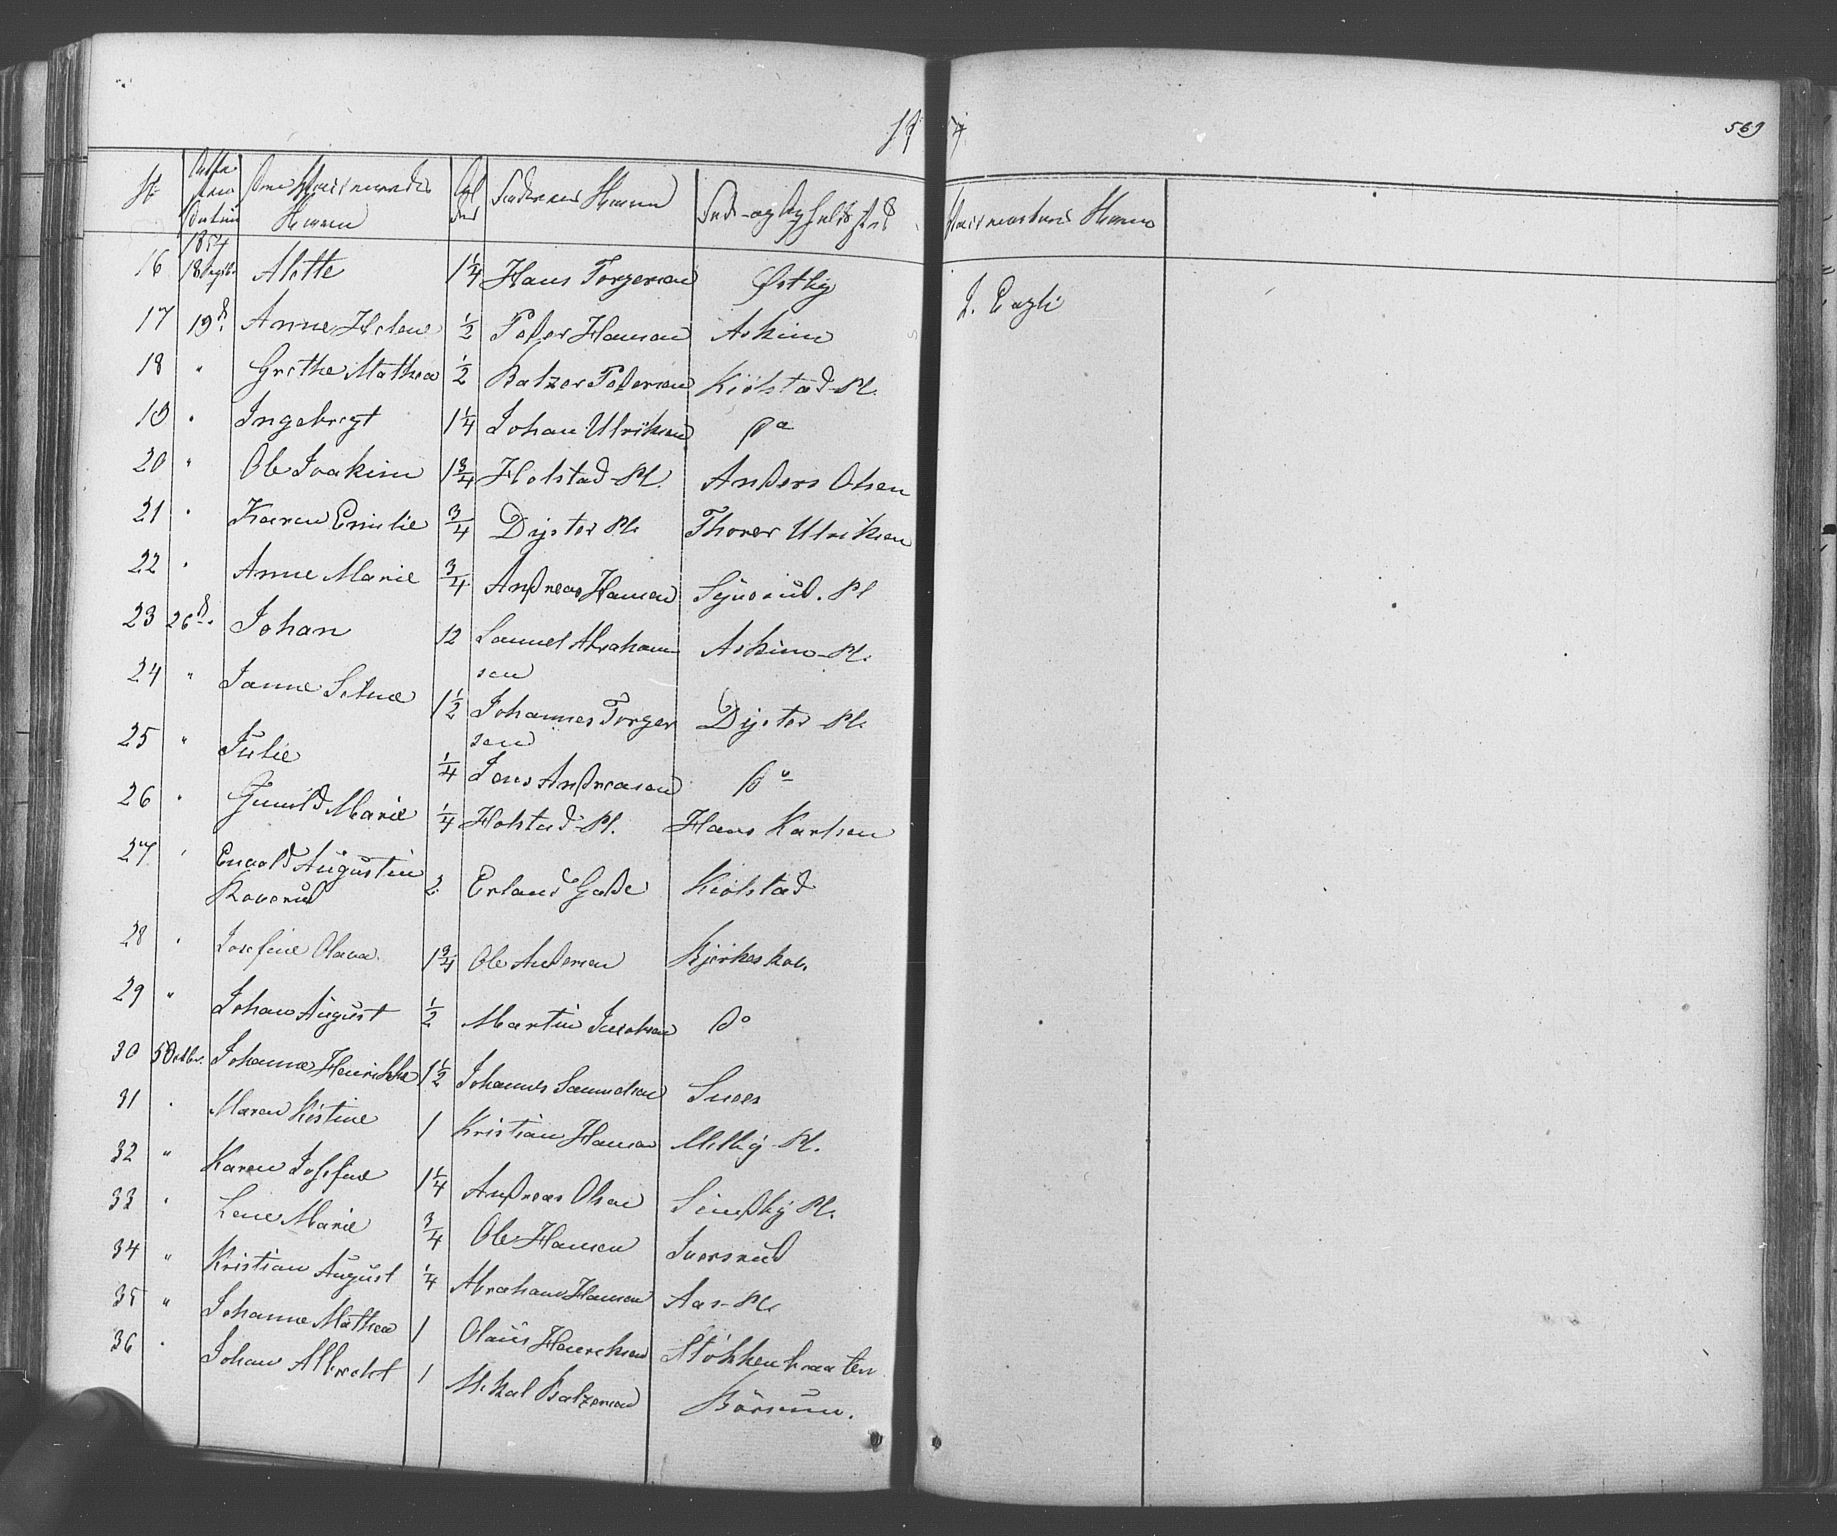 569
No
Vaccinations Datum
den Vaccineredes Navn
Al der
Faderens Navn
Føde- og Opholdssted
Vaccinateurens Navn
1854
16 18 Septbr Alette 1 1/4 Hans Torgersen Østby J. Engh
17 19 d. Anne Helene 1/2 Peder Hansen Askim
18 " Grethe Mathea 1/2 Balzer Pedersen Kiølstad Pl.
19 " Ingebrigt 1 1/4 Johan Ulriksen do
20 " Ole Joakim 1 3/4 Holstad Pl. Anders Olsen
21 " Karen Emilie 3/4 Dyster Pl. Thorer Ulriksen
22 " Anne Marie 3/4 Andreas Hansen Pl
23 26 d. Johan 12 Samuel Abraham Askim Pl.
sen
24 " Janne Selme 1 1/2 Johannes Torger Dyster Pl.
sen
25 " Julie 1/4 Jens Andreasen do
26 " Gunild Marie 1/4 Holstad Pl. Hans Karlsen
27 " Envald Augustin 2 Erland Gade Kiølstad
Roverud
28 " Josefine Olava 1 3/4 Ole Andersen Kjerkeskov.
29 " Johan August 1/2 Martin Jacobsen do
30 5 Octbr. Johanne Henrikke 1 1/2 Johannes Samuelsen
31 " Maren Kistine 1 Kristian Hansen Melby Pl.
32 " Karen Josefine 1 1/4 Andreas Olsen Sundby Pl.
33 " Lene Marie 3/4 Ole Hansen Iversrud
34 " Kristian August 1/4 Abraham Hansen Aas Pl.
35 " Johanne Mathea 1 Olaus Henriksen Stokkenbraaten
36 " Johan Albrecht 1 Mikal Balzersen